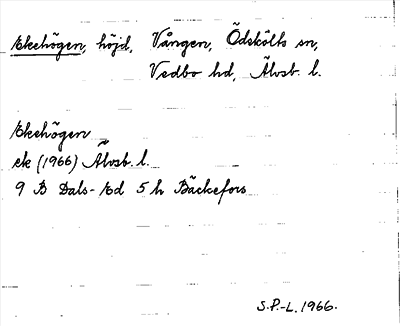 Ekehögen, höjd, Vången, Ödskölts sn,
Vedbo hd, Älvsb. l.
Ekehögen
ek (1966) Älvsb. l.
9 B Dals-Ed 5 h Bäckefors
S.P.-L. 1966.